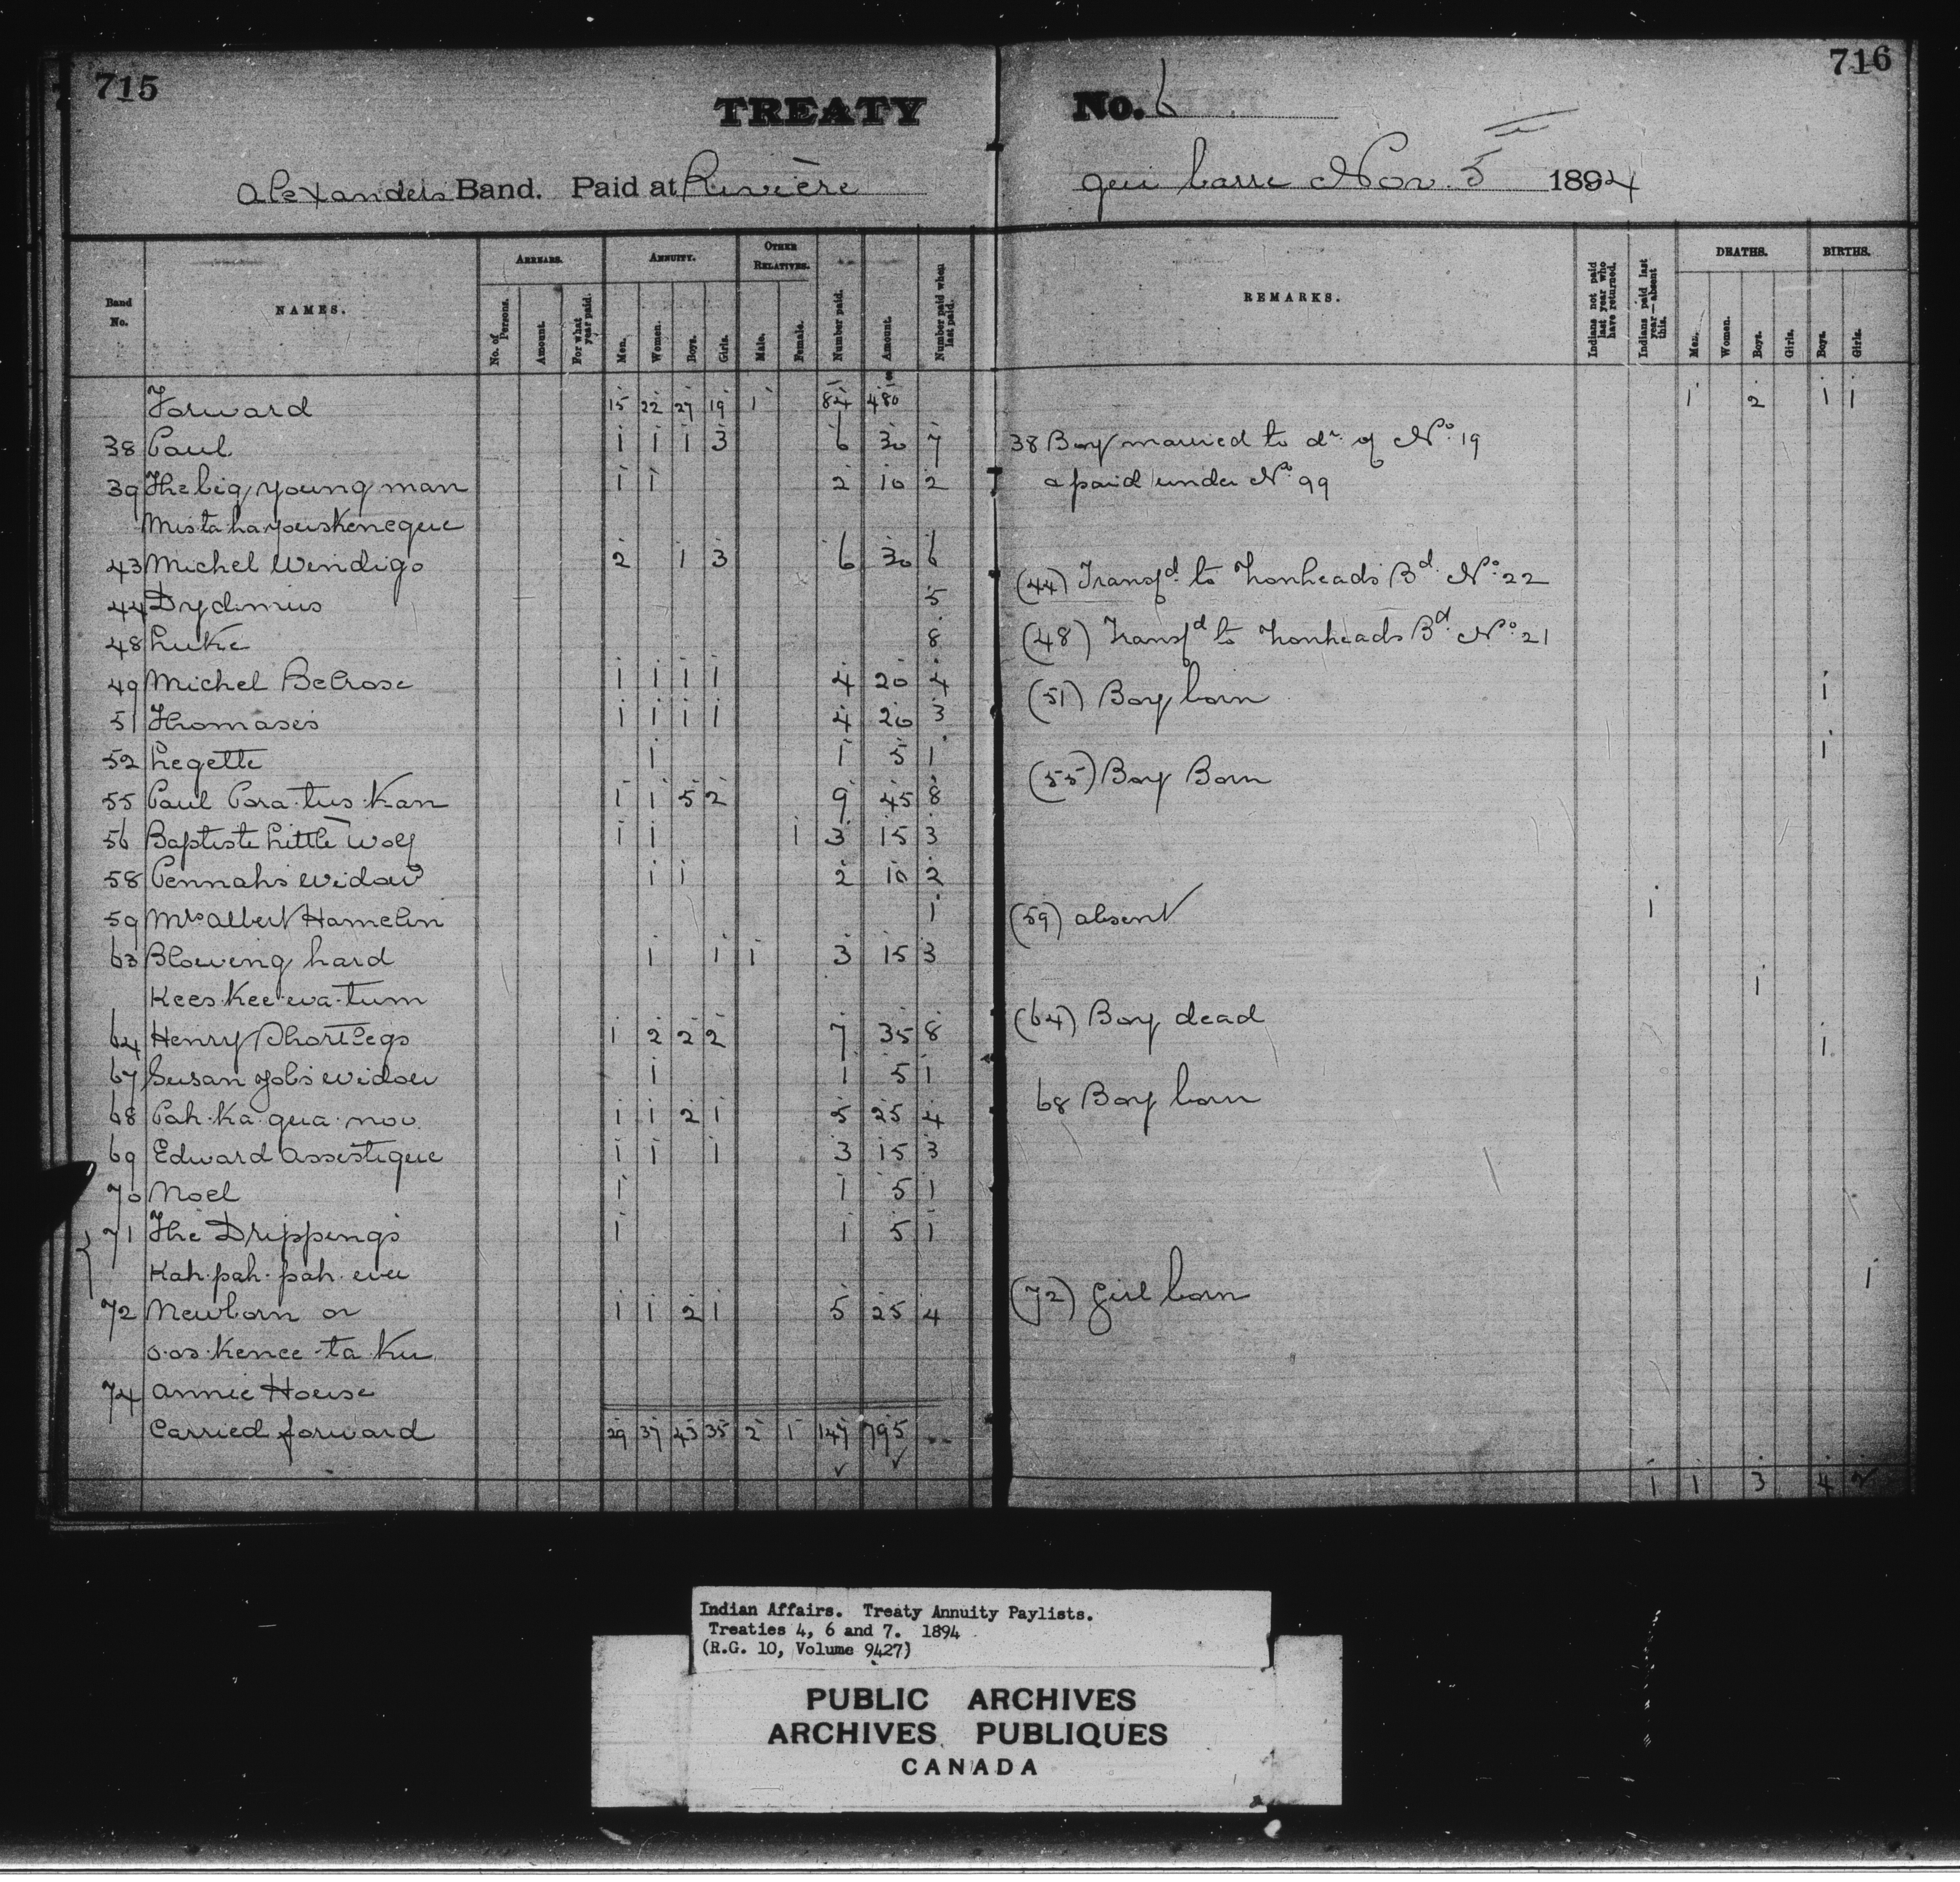 715
716
TREATY No. 6
Alexanders Band. Paid at Rivière qui barre Nov. 5 1894
Band No.
NAMES.
ARREARS.
No. of Persons.
Amount.
For what year paid.
ANNUITY.
Men.
Women.
Boys.
Girls.
OTHER RELATIVES.
Male.
Female.
Number paid.
Amount.
Number paid when last paid.
REMARKS.
Indians not paid last year who have returned.
Indians paid last year—absent this.
DEATHS.
Men.
Women.
Boys.
Girls.
BIRTHS.
Boys.
Girls.
Forward 15 22 27 19 1 84 480 1 2 1 1
38 Paul 1 1 1 3 6 30 7 38 Boy married to dr. of No. 19
39 The big young man 1 1 2 10 2 & paid under No. 99
Mis ta ha youskeneque
43 Michel Wendigo 2 1 3 6 30 6
44 Dydimus 5 (44) Transfd. to Ironheads Bd. No. 22
48 Luke 8 (48) Transfd to Ironheads Bd. No. 21
49 Michel Belrose 1 1 1 1 4 20 4
51 Thomases 1 1 1 1 4 20 3 (51) Boy born 1
52 Legette 1 1 5 1
55 Paul Para-tus-kan 1 1 5 2 9 45 8 (55) Boy Born 1
56 Baptiste Little Wolf 1 1 1 3 15 3
58 Pennahs widow 1 1 2 10 2
59 Mrs Albert Hamelin 1 (59) absent 1
63 Blowing hard 1 1 1 3 15 3
Kees-kee-wa-tum
64 Henry Shortlegs 1 2 2 2 7 35 8 (64) Boy dead 1
67 Susan Jobs widow 1 1 5 1
68 Pah-ka-qua-noo 1 1 2 1 5 25 4 68 Boy born 1
69 Edward Assestique 1 1 1 3 15 3
70 Noel 1 1 5 1
71 The Drippings 1 1 5 1
Kah-pah-pah-eue
72 Newborn or 1 1 2 1 5 25 4 (72) Girl born 1
o-os-kenee-ta-ku
74 Annie House
Carried forward 29 37 43 35 2 1 147 795
1 1 3 4 2
Indian Affairs. Treaty Annuity Paylists.
Treaties 4, 6 and 7. 1894
(R.G. 10, Volume 9427)
PUBLIC ARCHIVES
ARCHIVES PUBLIQUES
CANADA